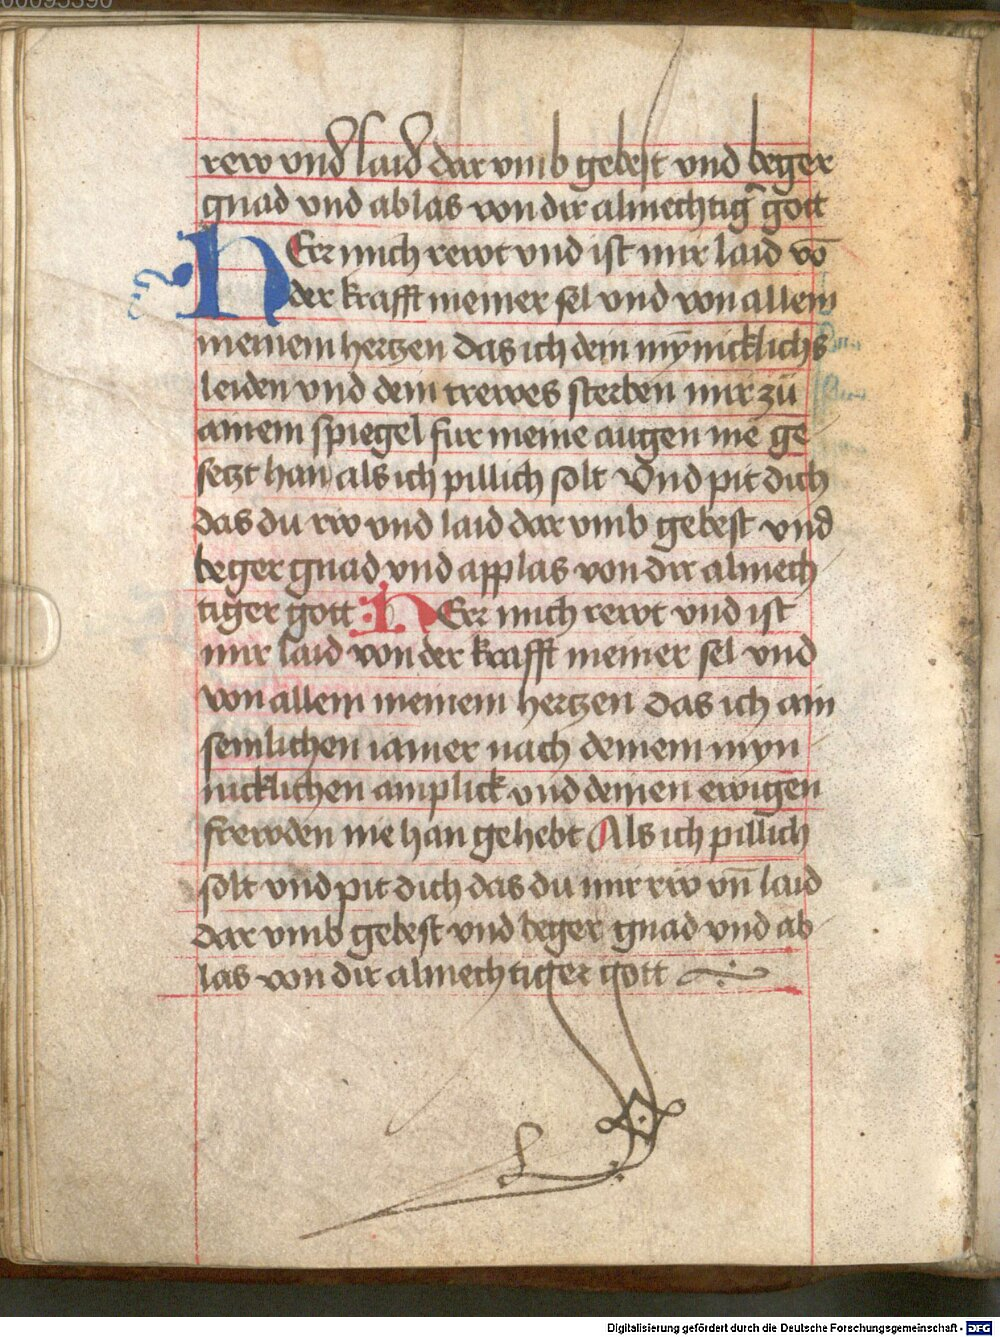 rew vnd laid dar vmb gebest vnd beger
gnad vnd ablas von dir almechtig̃ gott
HErr mich rewt vnd ist mir laid võ
der krafft meiner sel vnd von allem
meinem hertzen das ich dein mÿnicklichs
leiden vnd dein trewes sterben mir zü
ainem spiegel fur meine augen nie ge
setzt han als ich pillich solt Vnd pit dich
das du rw vnd laid dar vmb gebest vnd
beger gnad vnd applas von dir almech
tiger gott HErr mich rewt vnd ist
mir laid von der krafft meiner sel vnd
von allem meinem hertzen das ich ain
senlichen iamer nach deinem myn
nicklichen anplick vnd deinen ewigen
frewden nie han gehebt Als ich pillich
solt vnd pit dich das du mir rw vn̄ laid
dar vmb gebest vnd beger gnad vnd ab
las von dir almechtiger gott
Digitalisierung gefördert durch die Deutsche Forschungsgemeinschaft - DFG